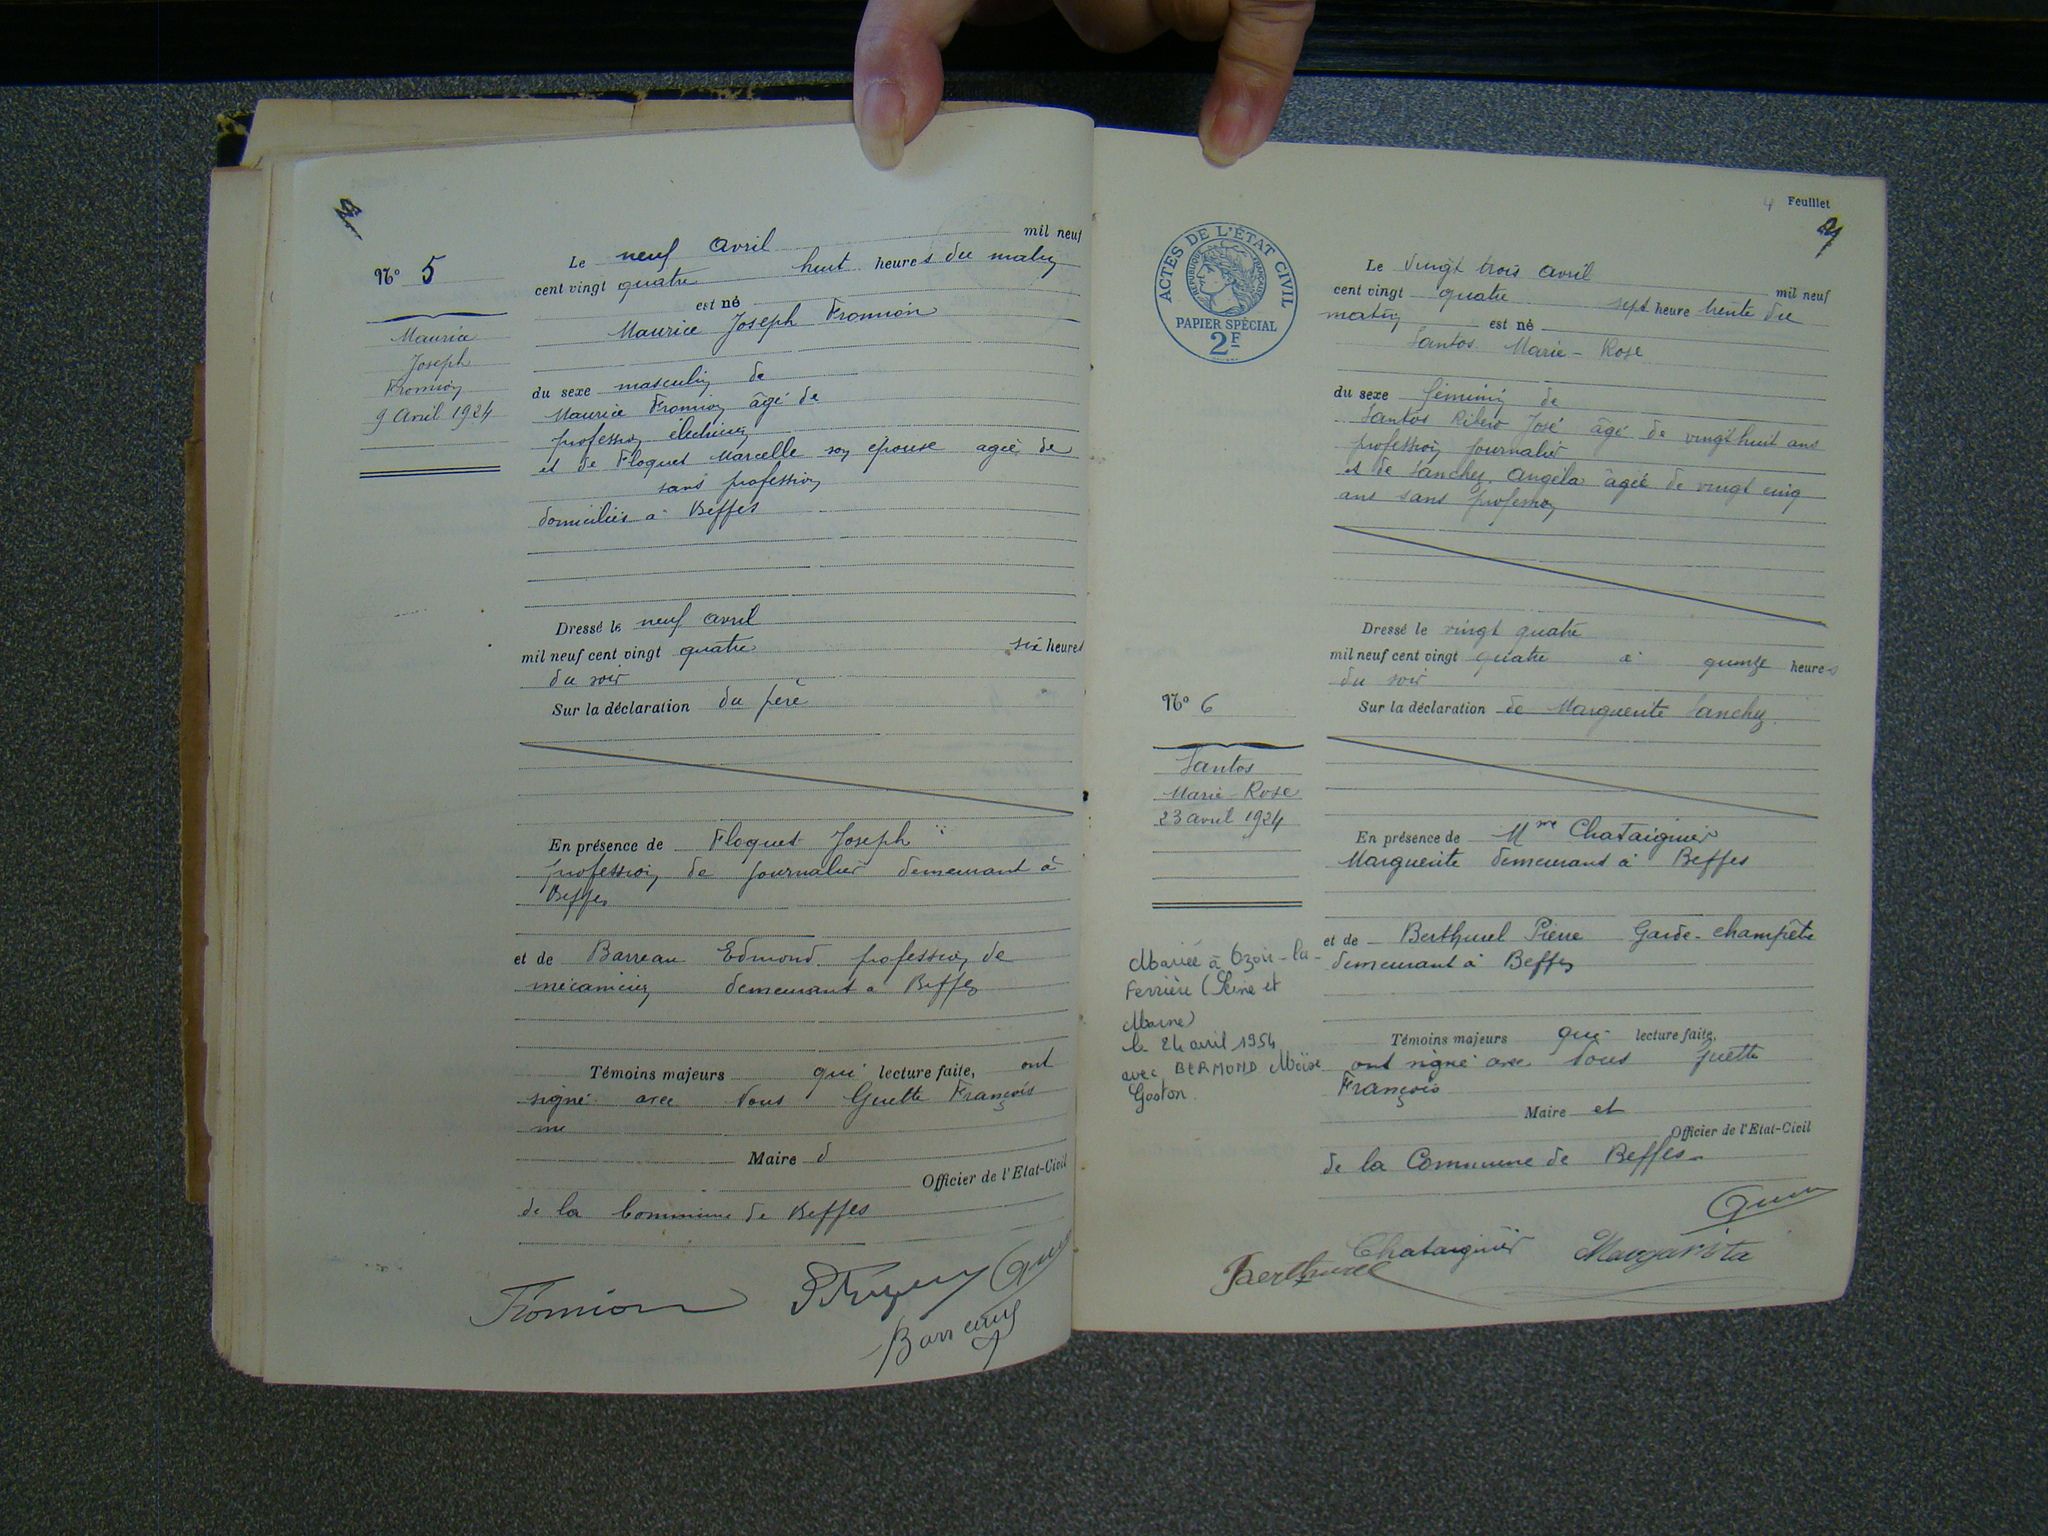 N° 5
Maurice
Joseph
Fromion
9 Avril 1924
Le neuf avril mil neuf
cent vingt quatre huit heures du matin
est né
Maurice Joseph Fromion
du sexe masculin de
Maurice Fromion âgé de
profession électricien
et de Floquet Marcelle son épouse agée de
sans profession
domiciliés à Beffes
Dressé le neuf avril
mil neuf cent vingt quatre six heures
du soir
Sur la déclaration du père
En présence de Floquet Joseph
profession de journalier demeurant à
Beffes
et de Barreau Edmond profession de
mécanicien demeurant à Beffes
Témoins majeurs qui lecture faite, ont
signé avec Nous Guette François
Maire d
Officier de l'Etat-Civil
de la Commune de Beffes
Fromion
Barreau
4 Feuillet
ACTES DE L'ÉTAT CIVIL
RÉPUBLIQUE FRANÇAISE
PAPIER SPÉCIAL
2F
Le vingt trois avril mil neuf
cent vingt quatre sept heure trente du
matin est né
Santos Marie-Rose
du sexe féminin de
Santos Ribero José âgé de vingt huit ans
profession journalier
et de Sanchez Angéla âgée de vingt cinq
ans sans profession
Dressé le vingt quatre
mil neuf cent vingt quatre à quinze heures
du soir
Sur la déclaration de Marguerite Sanchez
N° 6
Santos
Marie-Rose
23 avril 1924
En présence de Mme Chataignier
Marguerite demeurant à Beffes
et de Berthurel Pierre Garde-champêtre
demeurant à Beffes
Mariée à Ozoir-la-
Ferrière (Seine et
Marne)
le 24 avril 1954
avec BERMOND Moïse
Gaston.
Témoins majeurs qui lecture faite,
ont signé avec Nous Guette
François
Maire et
Officier de l'Etat-Civil
de la Commune de Beffes
Chataignier Margarita
Berthurel